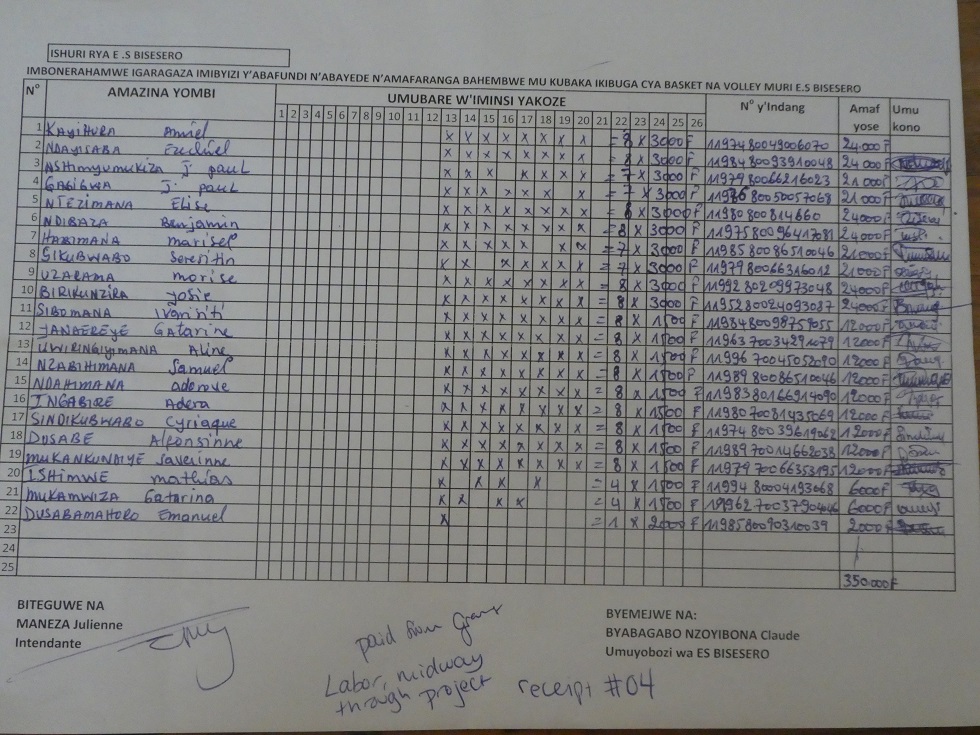 ISHURI RYA E .S BISESERO
IMBONERAHAMWE IGARAGAZA IMIBYIZI Y'ABAFUNDI N'ABAYEDE N'AMAFARANGA BAHEMBWE MU KUBAKA IKIBUGA CYA BASKET NA VOLLEY MURI E.S BISESERO
N° AMAZINA YOMBI UMUBARE W'IMINSI YAKOZE N° y'Indang Amaf yose Umu kono
1 2 3 4 5 6 7 8 9 10 11 12 13 14 15 16 17 18 19 20 21 22 23 24 25 26
1 KAYIHURA Amiel x x x x x x x x = 8 x 3000 F 1197480049006070 24.000 F
2 NDAYISABA Ezechiel x x x x x x x x = 8 x 3000 F 1198480093910048 24 000 F
3 NSHimyumukiza j. paul x x x x x x x = 7 x 3000 F 1197980066216023 21 000 F
4 GASIGWA j. paul x x x x x x x = 7 x 3000 F 21 000 F
5 NTEZIMANA Elise x x x x x x x x = 8 x 3000 F 11980800814660 24000 F
6 NDIBAZA Benjamin x x x x x x x x = 8 x 3000 F 1197580096417081 24000 F
7 HABIMANA marisel x x x x x x x = 7 x 3000 F 1198580086510046 21000 F
8 SIKUBWABO Seresitin x x x x x x x = 7 x 3000 F 1197980066316012 21000 F
9 UZARAMA morise x x x x x x x x = 8 x 3000 F 1199280209973048 24000 F
10 BIRIKUNZIRA Josie x x x x x x x x = 8 x 3000 F 1195280024093087 24000 F
11 SIBOMANA x x x x x x x x = 8 x 1500 F 1198480098759055 12000 F
12 Gatarine x x x x x x x x = 8 x 1500 F 1196370034291079 12000 F
13 UWIRINGIYIMANA Aline x x x x x x x x = 8 x 1500 F 1199670045052090 12000 F
14 NZABIHIMANA Samuel x x x x x x x x = 8 x 1500 F 1198980086510046 12000 F
15 NDAHIMANA x x x x x x x x = 8 x 1500 F 1198380166214090 12000 F
16 INGABIRE Adera x x x x x x x x = 8 x 1500 F 1198070081435069 12000 F
17 SINDIKUBWABO Cyriaque x x x x x x x x = 8 x 1500 F 1197480039619062 12000 F
18 DUSABE Alfonsinne x x x x x x x x = 8 x 1500 F 1198970014662038 12000 F
19 MUKANKUNDIYE Saverinne x x x x x x x x = 8 x 1500 F 1197970066358195 12000 F
20 ISHIMWE mathias x x x x = 4 x 1500 F 1199480004193068 6000 F
21 MUKAMWIZA Gatarina x x x x = 4 x 1500 F 6000 F
22 DUSABAMAHORO Emanuel x = 1 x 2000 F 1198580090310039 2000 F
23
24
25 350.000 F
BITEGUWE NA
MANEZA Julienne
Intendante
BYEMEJWE NA:
BYABAGABO NZOYIBONA Claude
Umuyobozi wa ES BISESERO
paid from grant
Labor, midway
through project
receipt #04